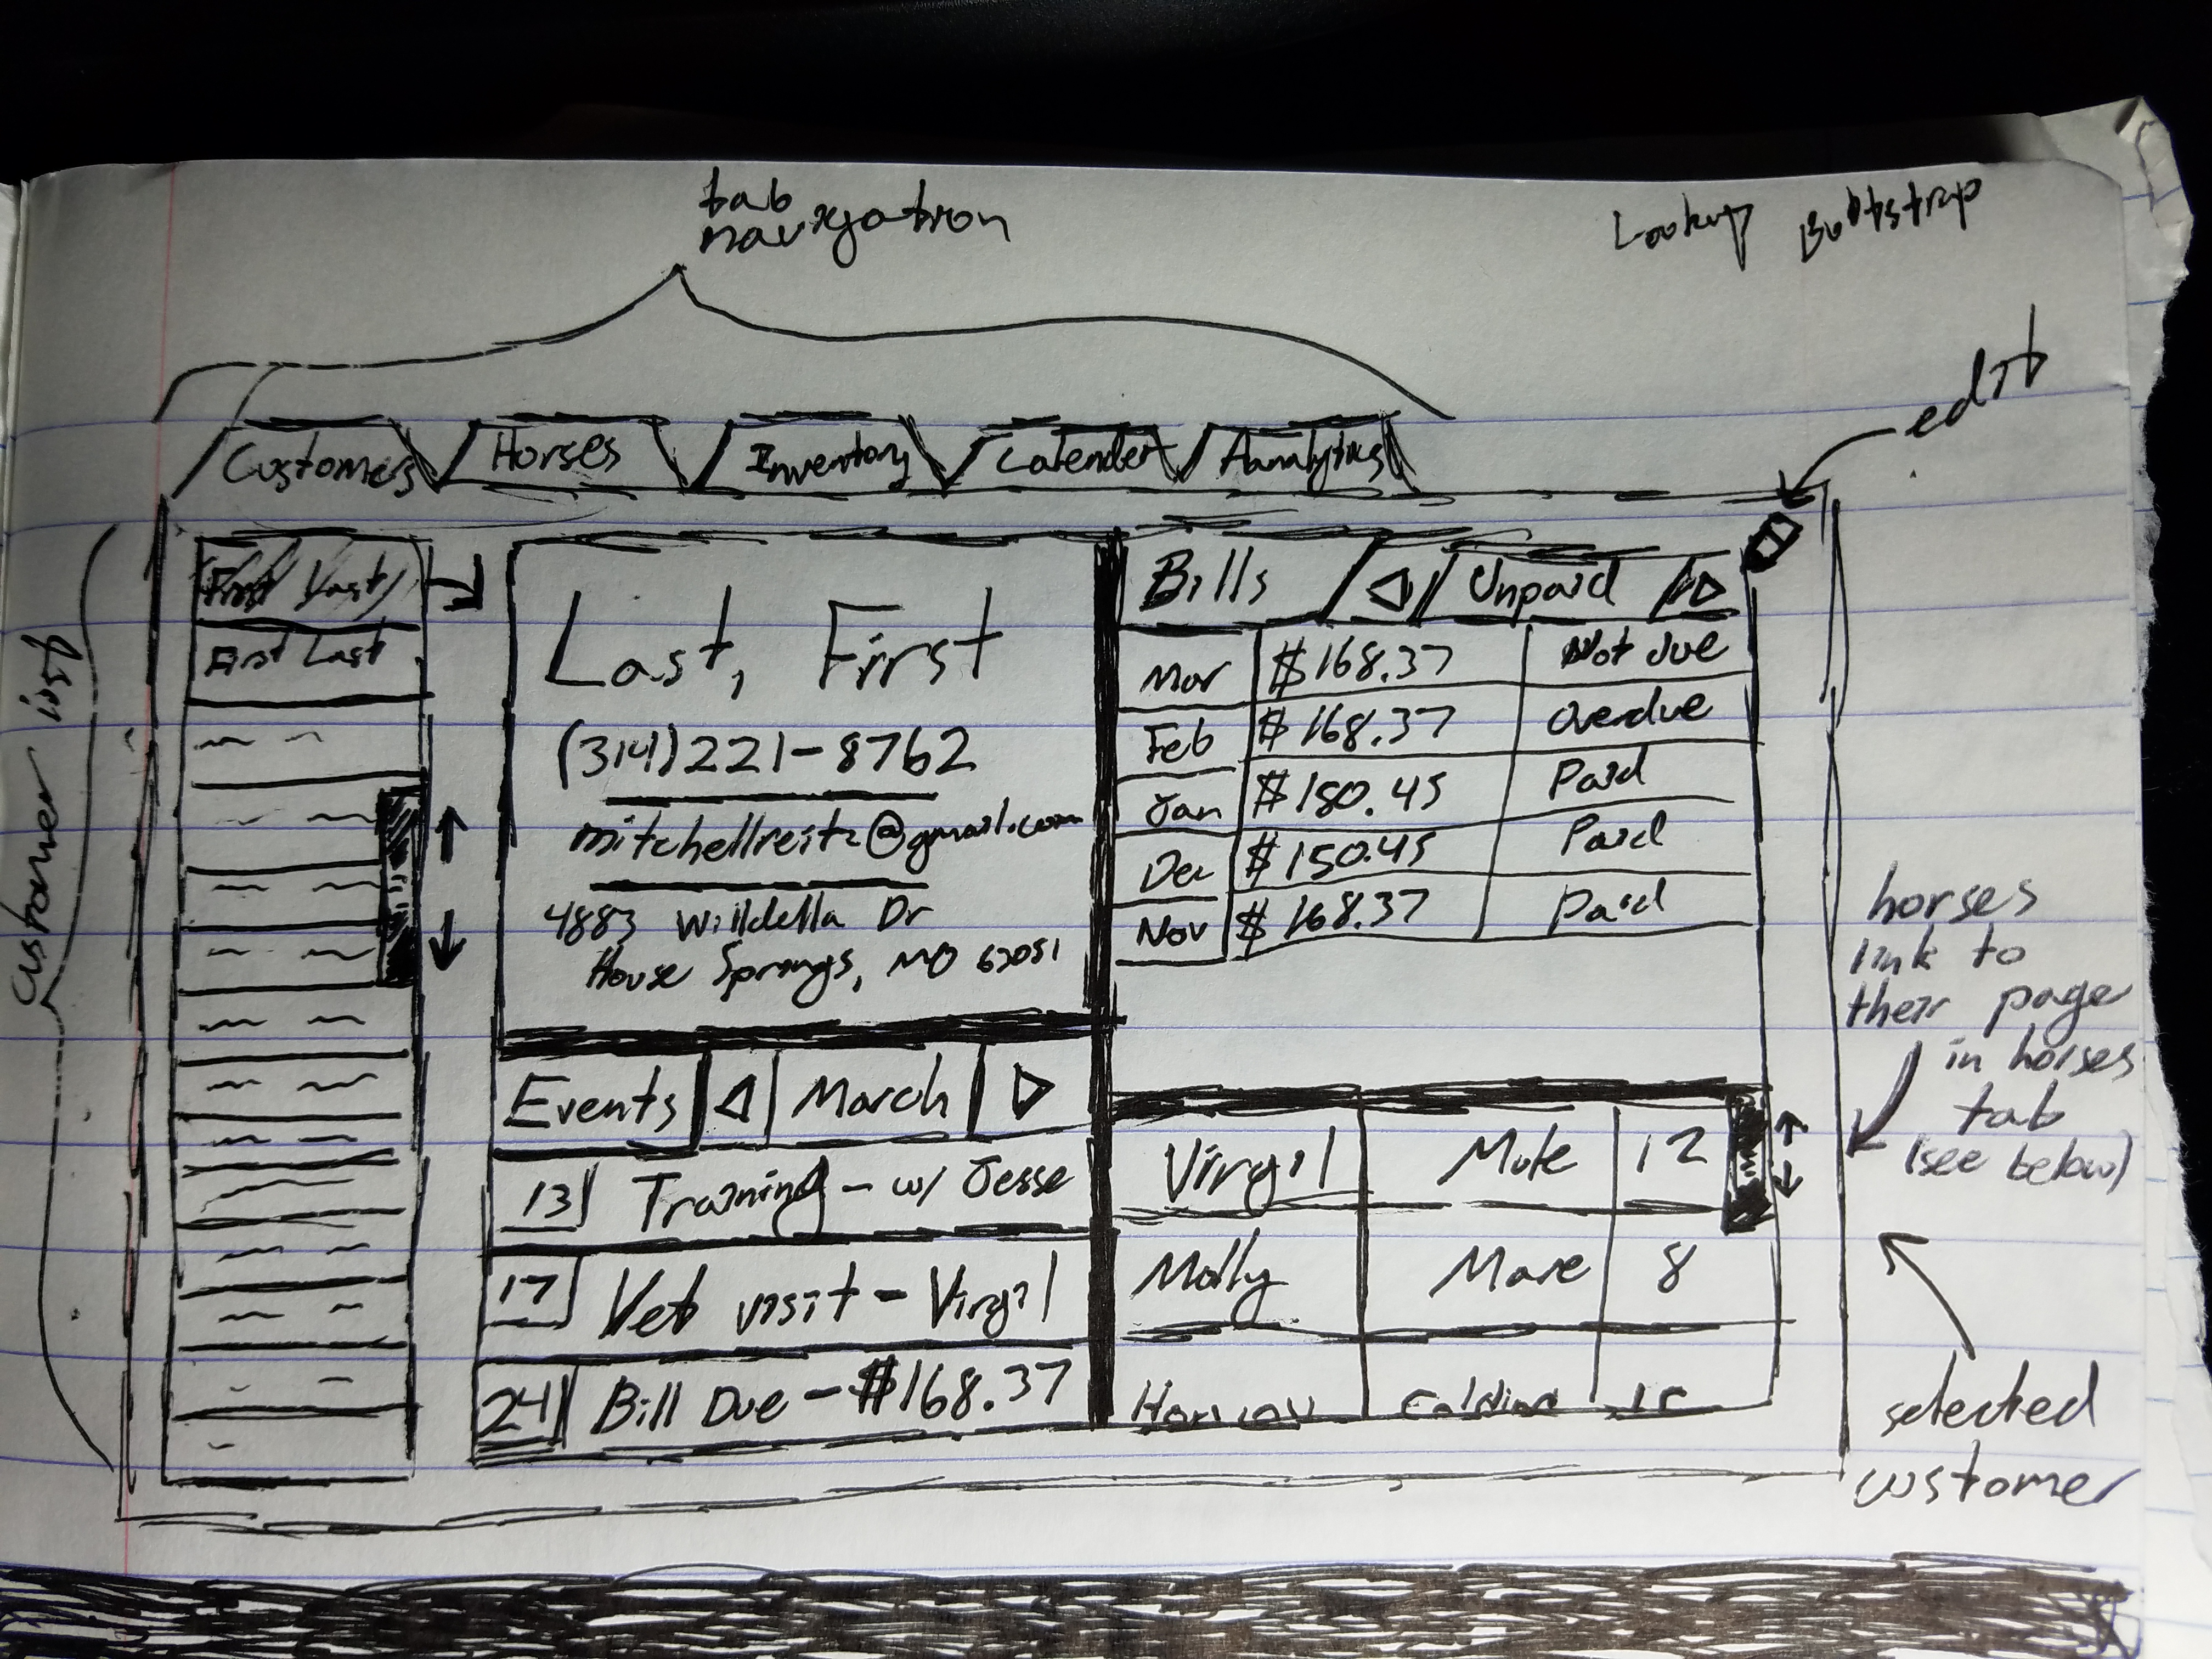 tab
navigation
Lookup Bootstrap
edit
Customers
Horses
Inventory
Calender
Analytics
customer list
First Last
First Last
Last, First
(314)221-8762
mitchellreitz@gmail.com
4883 Willdella Dr
House Springs, MO 63051
Bills
Unpaid
Mar $168.37 Not due
Feb $168.37 Overdue
Jan $180.45 Paid
Dec $150.45 Paid
Nov $168.37 Paid
Events
March
13 Training - w/ Jesse
17 Vet visit - Virgil
24 Bill Due - $168.37
Virgil Mule 12
Molly Mare 8
horses
link to
their page
in horses
tab
(see below)
selected
customer